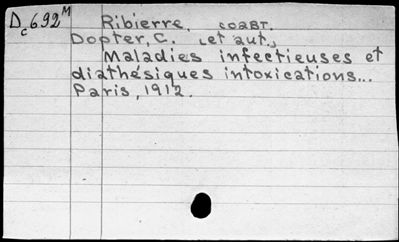 Dc692ᴹ Ribierre. соавт.
Dopter, C. [et aut.,
Maladies infectieuses et
diathésiques intoxications...
Paris, 1912.